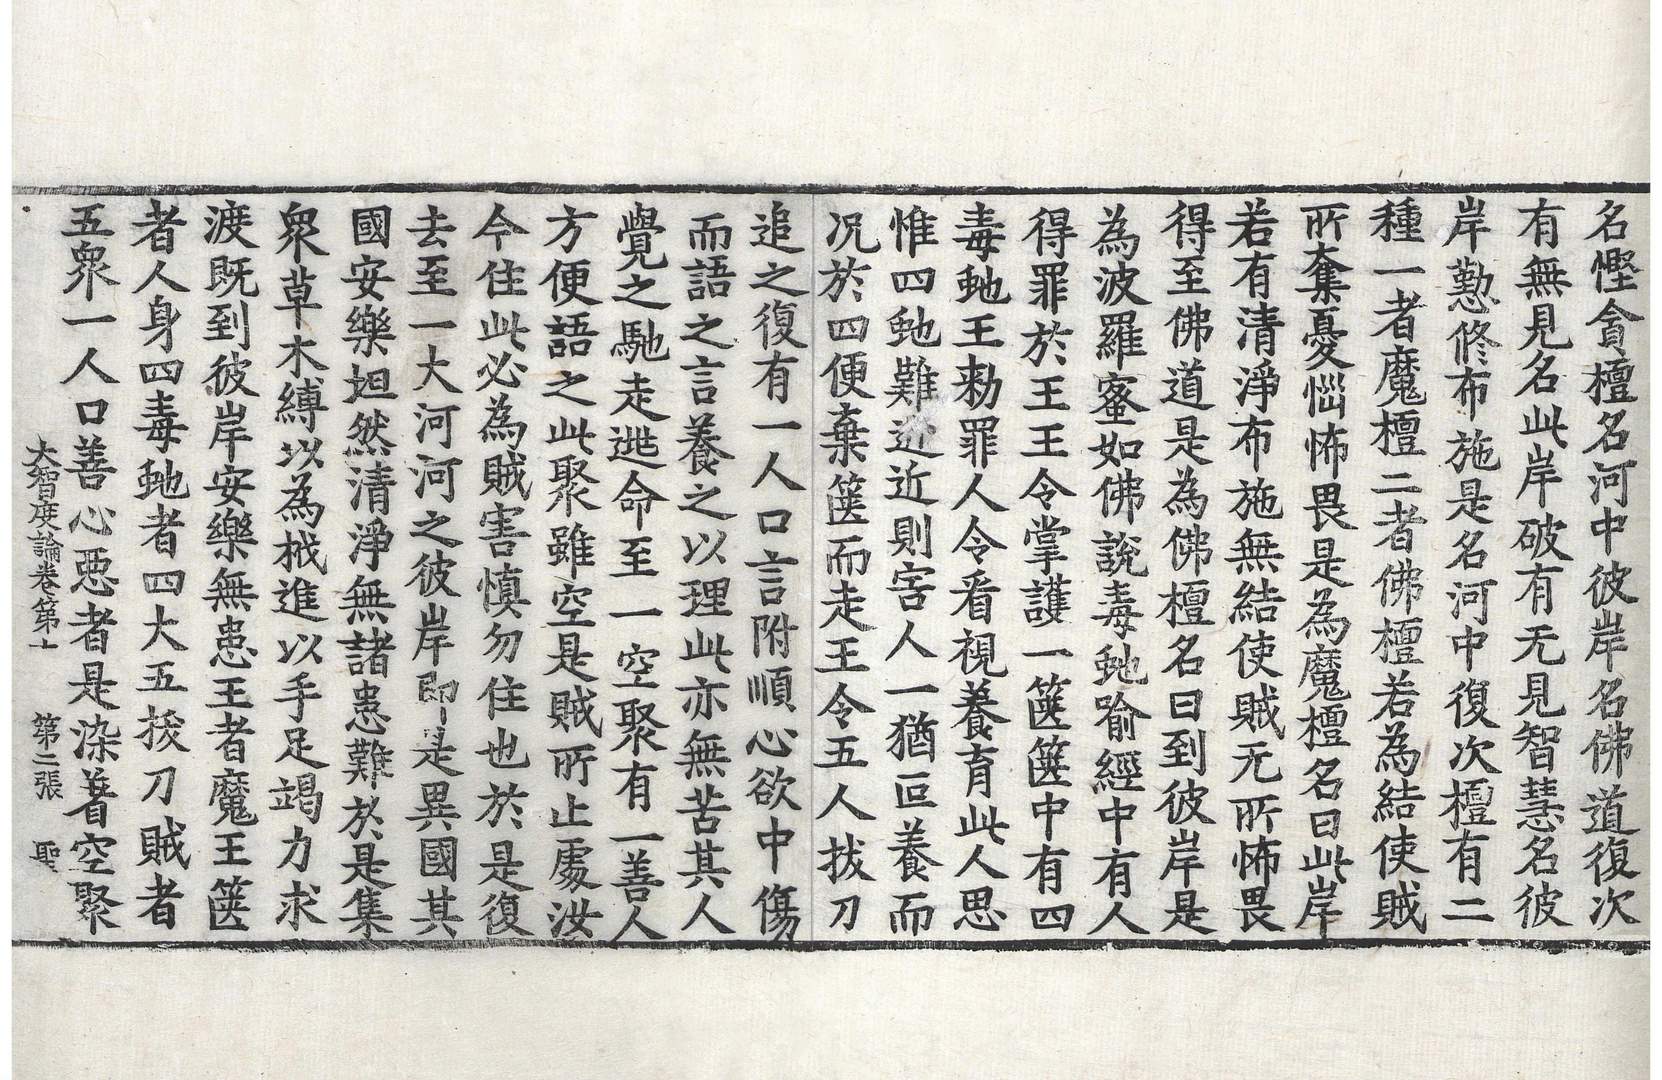 名慳貪檀名河中彼岸名佛道復次
有無見名此岸破有无見智慧名彼
岸懃修布施是名河中復次檀有二
種一者魔檀二者佛檀若為結使賊
所奪憂惱怖畏是為魔檀名曰此岸
若有清淨布施無結使賊无所怖畏
得至佛道是為佛檀名曰到彼岸是
為波羅蜜如佛說毒虵喻經中有人
得罪於王王令掌護一篋篋中有四
毒虵王勑罪人令看視養育此人思
惟四虵難近近則害人一猶叵養而
况於四便棄篋而走王令五人拔刀
追之復有一人口言附順心欲中傷
而語之言養之以理此亦無苦其人
覺之馳走逃命至一空聚有一善人
方便語之此聚雖空是賊所止處汝
今住此必為賊害慎勿住也於是復
去至一大河河之彼岸即是異國其
國安樂坦然清淨無諸患難於是集
衆草木縛以為栰進以手足竭力求
渡既到彼岸安樂無患王者魔王篋
者人身四毒虵者四大五拔刀賊者
五衆一人口善心惡者是染着空聚
大智度論卷第十二　第二張　聖